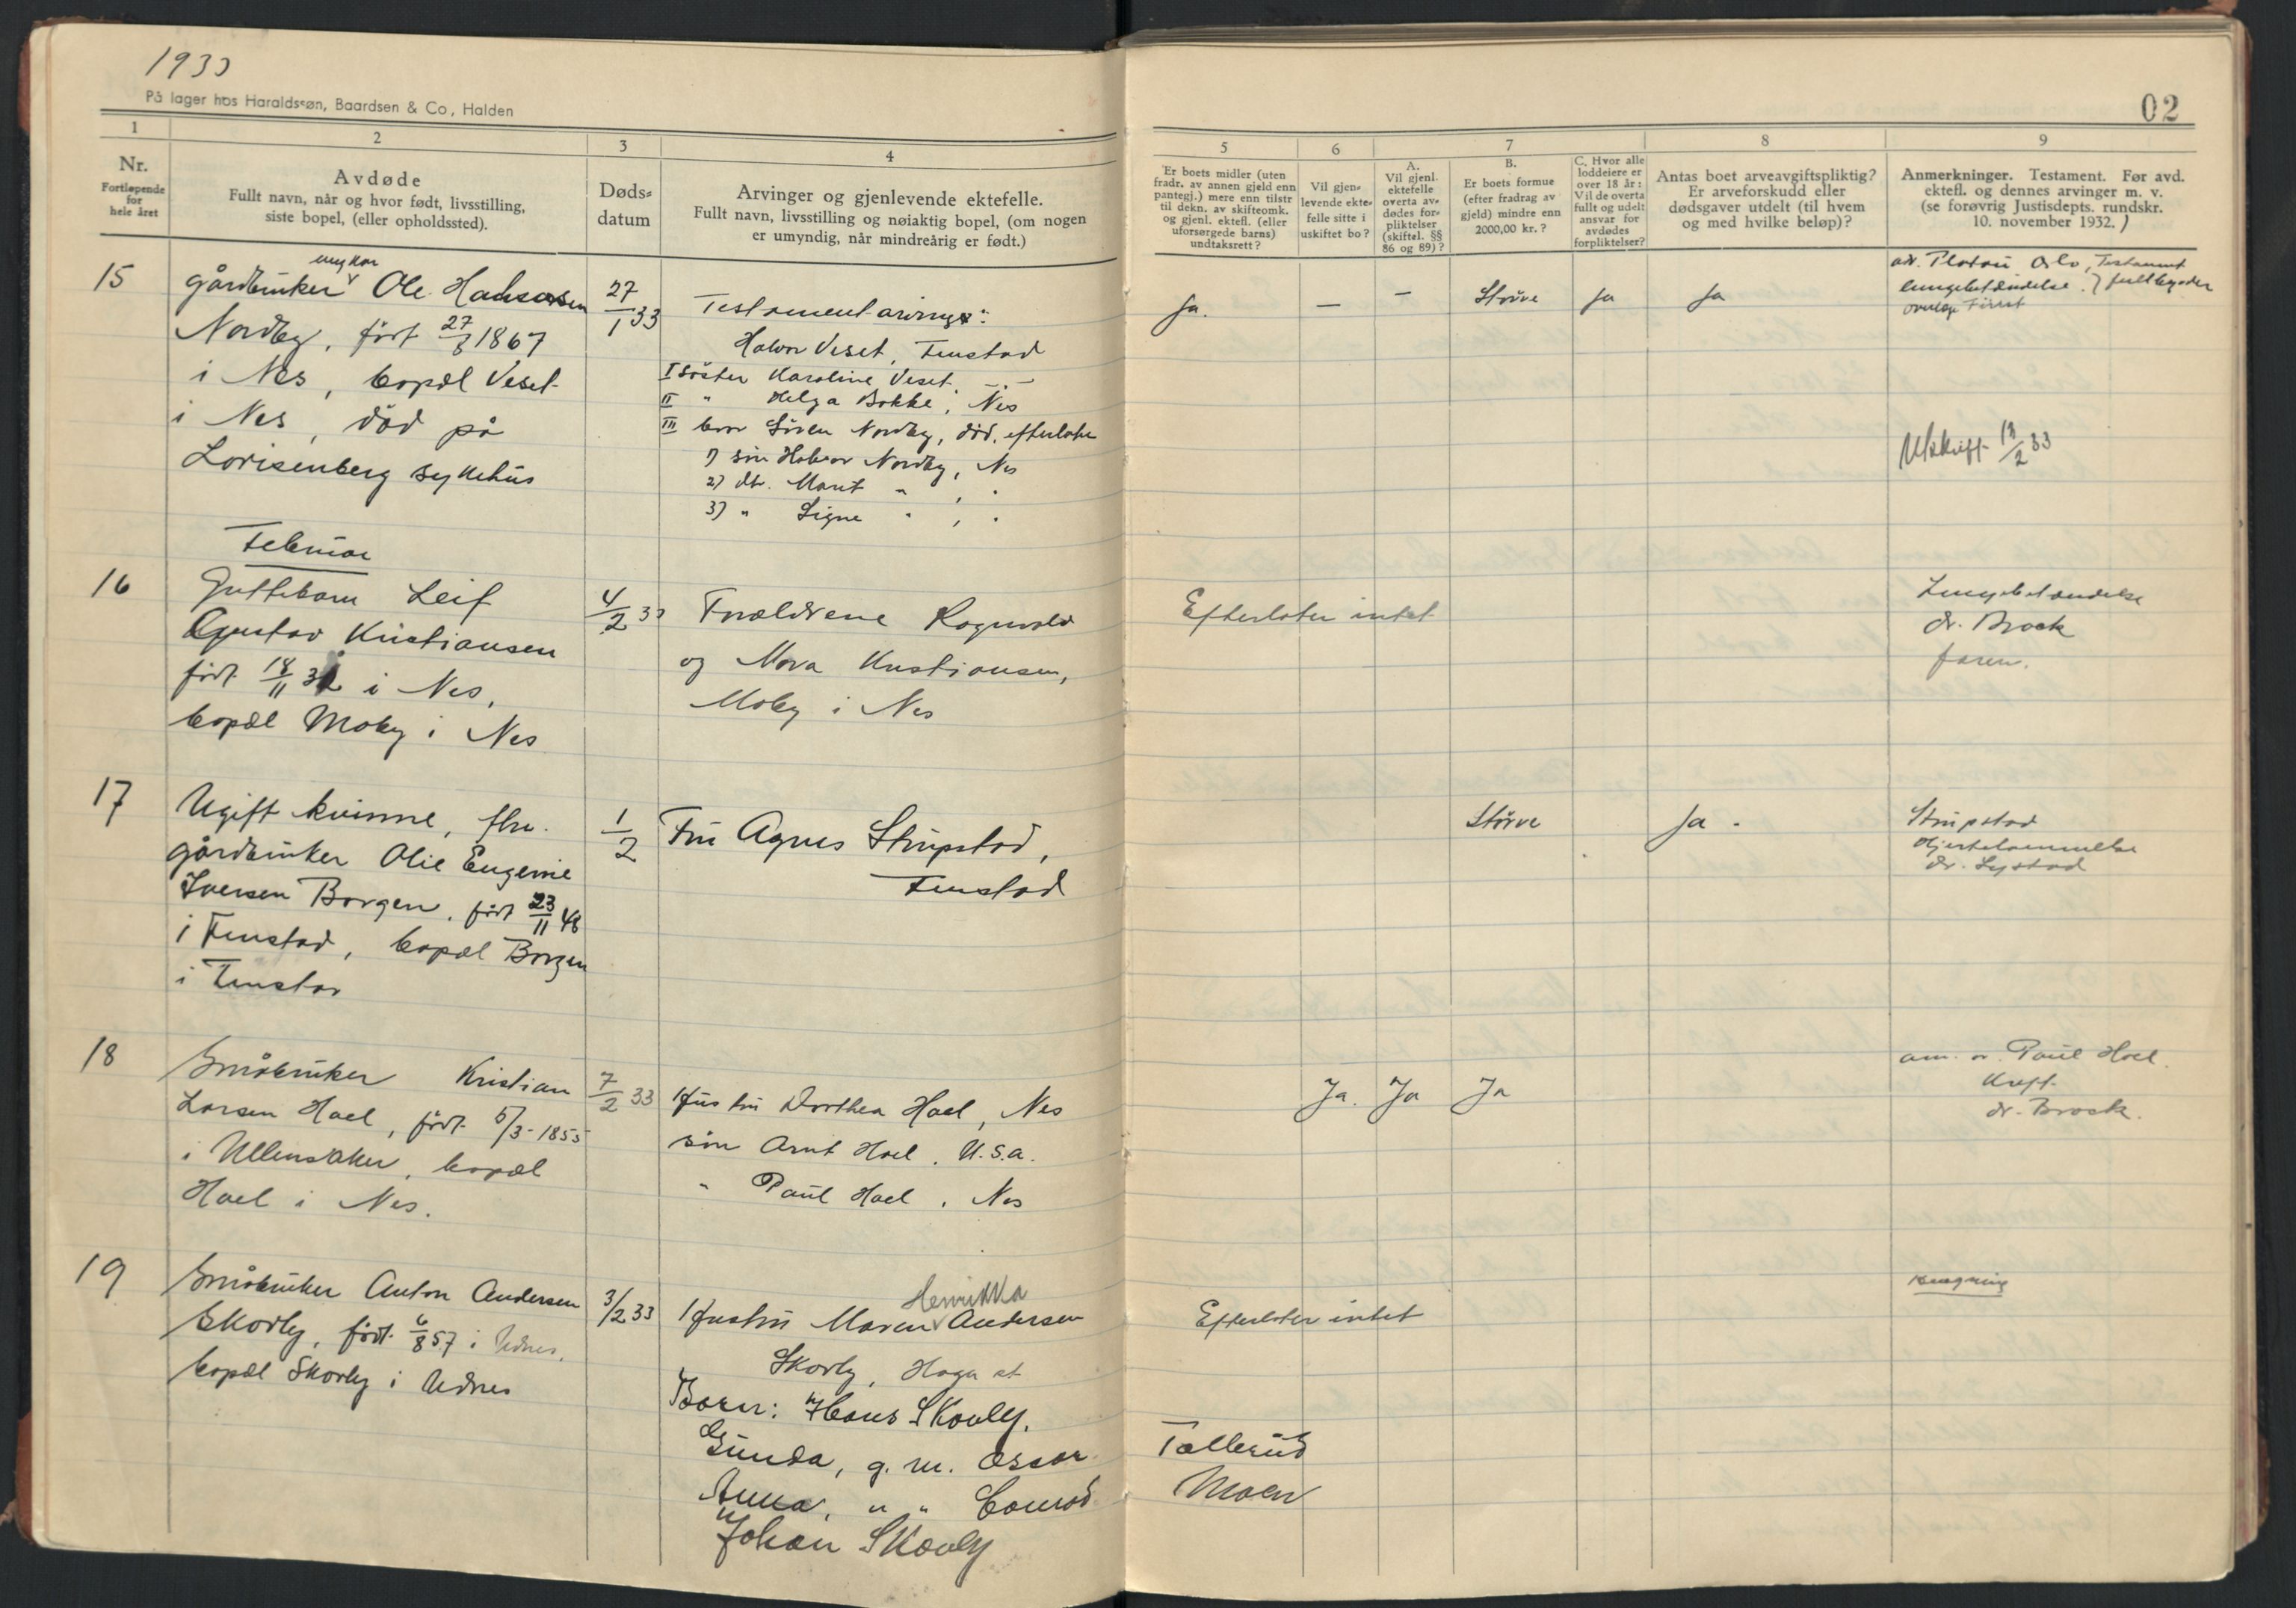 1933
På lager hos Haraldssøn, Baardsen & Co, Halden
02
1
2
3
4
5
6
7
8
9
Nr.
Fortløpende
for
hele året
Avdøde
Fullt navn, når og hvor født, livsstilling,
siste bopel, (eller opholdssted).
Døds=
datum
Arvinger og gjenlevende ektefelle.
Fullt navn, livsstilling og nøiaktig bopel, (om nogen
er umyndig, når mindreårig er født.)
Er boets midler (uten
fradr. av annen gjeld enn
pantegj.) mere enn tilstr
til dekn. av skifteomk.
og gjenl. ektefl. (eller
uforsørgede barns)
undtaksrett?
Vil gjen=
levende ekte=
felle sitte i
uskiftet bo?
A.
Vil gjenl.
ektefelle
overta av=
dødes for=
pliktelser
(skiftel. §§
86 og 89)?
B.
Er boets formue
(efter fradrag av
gjeld) mindre enn
2000,00 kr.?
C. Hvor alle
loddeiere er
over 18 år:
Vil de overta
fullt og udelt
ansvar for
avdødes
forpliktelser?
Antas boet arveavgiftspliktig?
Er arveforskudd eller
dødsgaver utdelt (til hvem
og med hvilke beløp)?
Anmerkninger. Testament. Før avd.
ektefl. og dennes arvinger m. v.
(se forøvrig Justisdepts. rundskr.
10. november 1932.)
15
ungkar
gårdbruker Ole Hansen
Nordby, født 27/3 1867
i Nes, bopæl Veset
i Nes, død på
Lovisenberg sykehus
27/1 33
Testamentarvinger:
Halvor Veset, Fenstad
I søster Karoline Veset, -"-
II " Helga Bakke, Nes
III bror Søren Nordby, død, efterlater
1) søn Halvor Nordby, Nes
2) dtr. Marit " , "
3) " Signe " , "
Ja.
—
—
Større
Ja
Ja
adv. Platou Oslo, Testament
lungebetændelse
Utskrift 18/2 33
Februar
16
Guttebarn Leif
Gustav Kristiansen
født 18/11 32 i Nes,
bopæl Moby i Nes
4/2 33
Forældrene Ragnvald
og Mova Kristiansen,
Moby i Nes
Efterlater intet
Lungebetændelse
dr. Brock
faren.
17
Ugift kvinne, fhv.
gårdbruker Olie Eugenie
Iversen Borgen, født 23/11 48
i Fenstad, bopæl Borgen
i Fenstad
1/2
Fru Agnes Strupstad,
Fenstad
Større
Ja -
Strupstad
Hjertelammelse
dr. Lystad
18
Småbruker Kristian
Larsen Hoel, født 5/3-1855
i Ullensaker, bopæl
Hoel i Nes.
7/2 33
Hustru Dorthea Hoel, Nes
søn Arnt Hoel, U.S.A.
" Paul Hoel, Nes
Ja.
Ja
Ja
anm. av Paul Hoel.
Kreft
dr. Brock.
19
Småbruker Anton Andersen
Skovly, født 6/8 57 i Udnes,
bopæl Skovly i Udnes
3/2 33
Henrikka
Hustru Maren Andersen
Skovly, Haga st
Barn: Hans Skovly.
Gunda, g. m. Oscar Tællerud
Anna, " " Conrad Moen
Johan Skovly
Efterlater intet